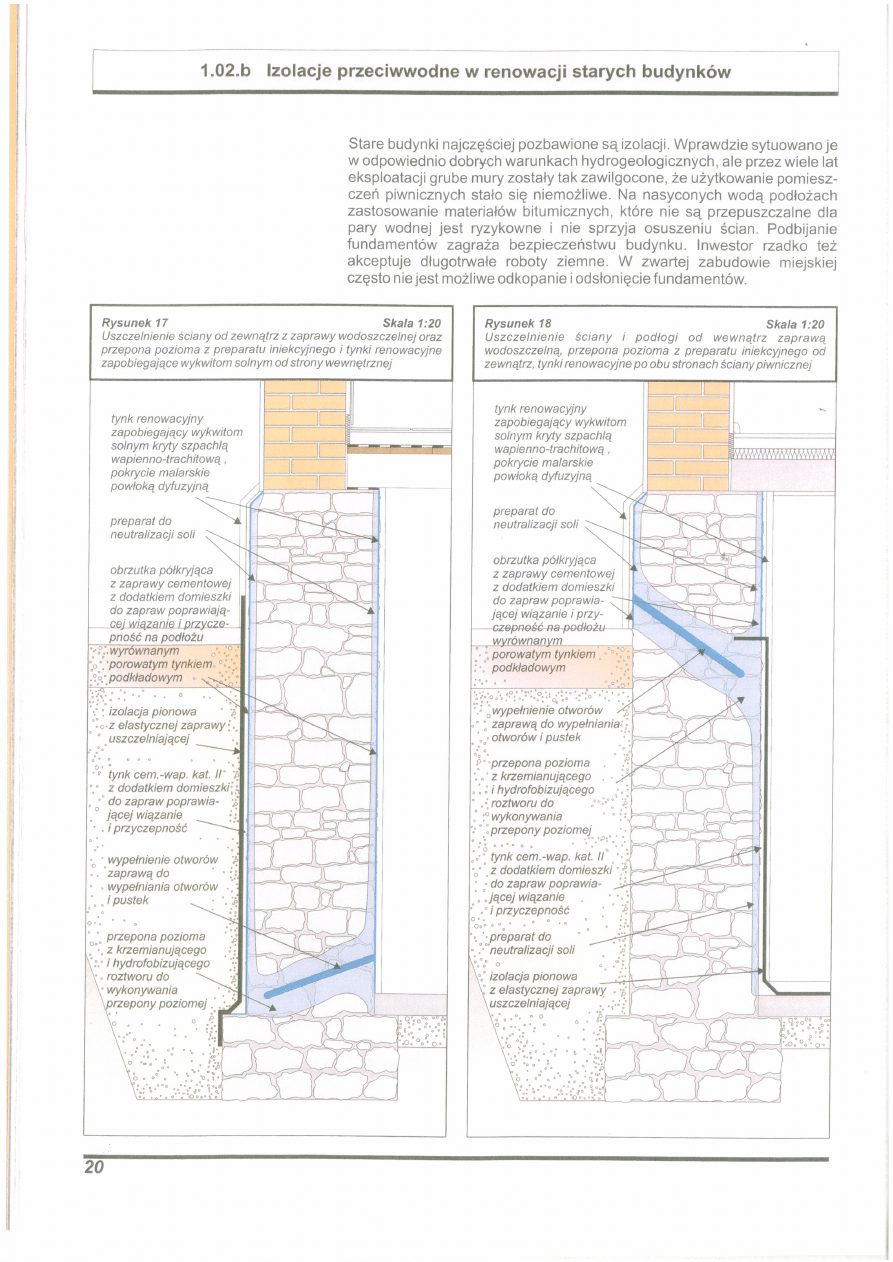 1.02.b Izolacje przeciwwodne w renowacji starych budynków
Stare budynki najczęściej pozbawione są izolacji. Wprawdzie sytuowano je
w odpowiednio dobrych warunkach hydrogeologicznych, ale przez wiele lat
eksploatacji grube mury zostały tak zawilgocone, że użytkowanie pomiesz-
czeń piwnicznych stało się niemożliwe. Na nasyconych wodą podłożach
zastosowanie materiałów bitumicznych, które nie są przepuszczalne dla
pary wodnej jest ryzykowne i nie sprzyja osuszeniu ścian. Podbijanie
fundamentów zagraża bezpieczeństwu budynku. Inwestor rzadko też
akceptuje długotrwałe roboty ziemne. W zwartej zabudowie miejskiej
często nie jest możliwe odkopanie i odsłonięcie fundamentów.
Rysunek 17 Skala 1:20
Uszczelnienie ściany od zewnątrz z zaprawy wodoszczelnej oraz
przepona pozioma z preparatu iniekcyjnego i tynki renowacyjne
zapobiegające wykwitom solnym od strony wewnętrznej
tynk renowacyjny
zapobiegający wykwitom
solnym kryty szpachlą
wapienno-trachitową ,
pokrycie malarskie
powłoką dyfuzyjną
preparat do
neutralizacji soli
obrzutka półkryjąca
z zaprawy cementowej
z dodatkiem domieszki
do zapraw poprawiają-
cej wiązanie i przycze-
pność na podłożu
wyrównanym
porowatym tynkiem
podkładowym
izolacja pionowa
z elastycznej zaprawy
uszczelniającej
tynk cem.-wap. kat. II
z dodatkiem domieszki
do zapraw poprawia-
jącej wiązanie
i przyczepność
wypełnienie otworów
zaprawą do
wypełniania otworów
i pustek
przepona pozioma
z krzemianującego
i hydrofobizującego
roztworu do
wykonywania
przepony poziomej
Rysunek 18 Skala 1:20
Uszczelnienie ściany i podłogi od wewnątrz zaprawą
wodoszczelną, przepona pozioma z preparatu iniekcyjnego od
zewnątrz, tynki renowacyjne po obu stronach ściany piwnicznej
tynk renowacyjny
zapobiegający wykwitom
solnym kryty szpachlą
wapienno-trachitową ,
pokrycie malarskie
powłoką dyfuzyjną
preparat do
neutralizacji soli
obrzutka półkryjąca
z zaprawy cementowej
z dodatkiem domieszki
do zapraw poprawia-
jącej wiązanie i przy-
czepność na podłożu
wyrównanym
porowatym tynkiem
podkładowym
wypełnienie otworów
zaprawą do wypełniania
otworów i pustek
przepona pozioma
z krzemianującego
i hydrofobizującego
roztworu do
wykonywania
przepony poziomej
tynk cem.-wap. kat. II
z dodatkiem domieszki
do zapraw poprawia-
jącej wiązanie
i przyczepność
preparat do
neutralizacji soli
izolacja pionowa
z elastycznej zaprawy
uszczelniającej
20